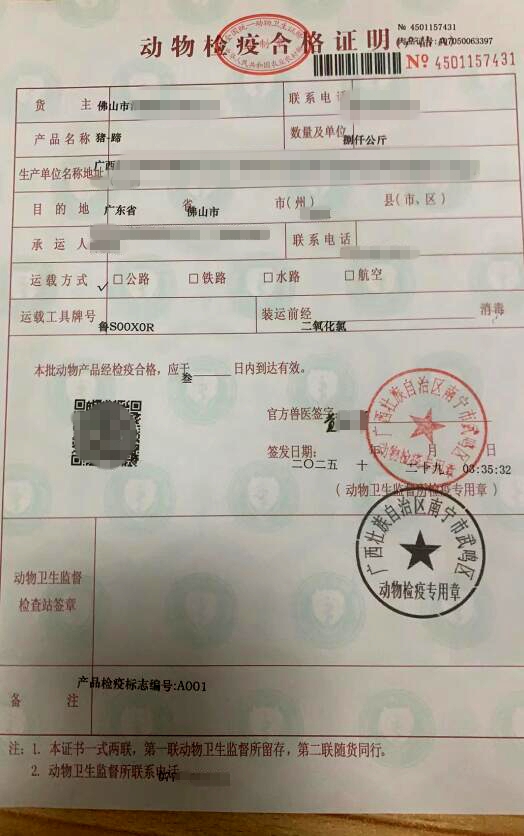 动物检疫合格证明(产品A)
№ 4501157431
№ 4501157431
货 主 佛山市 联系电话
产品名称 猪-蹄 数量及单位 捌仟公斤
生产单位名称地址 广西
目的地 广东省 省 佛山市 市(州) 县(市、区)
承运人 联系电话
运载方式 ✓ □公路 □铁路 □水路 □航空
运载工具牌号 鲁S00X0R 装运前经 二氧化氯 消毒
本批动物产品经检疫合格,应于 叁 日内到达有效。
官方兽医签字
签发日期: 二〇二五 年 十 月 二十九 日 03:35:32
(动物卫生监督所检疫专用章)
广西壮族自治区南宁市武鸣区
动物检疫专用章
广西壮族自治区南宁市武鸣区
动物检疫专用章
动物卫生监督
检查站签章
备 注 产品检疫标志编号:A001
注: 1. 本证书一式两联,第一联动物卫生监督所留存,第二联随货同行。
2. 动物卫生监督所联系电话